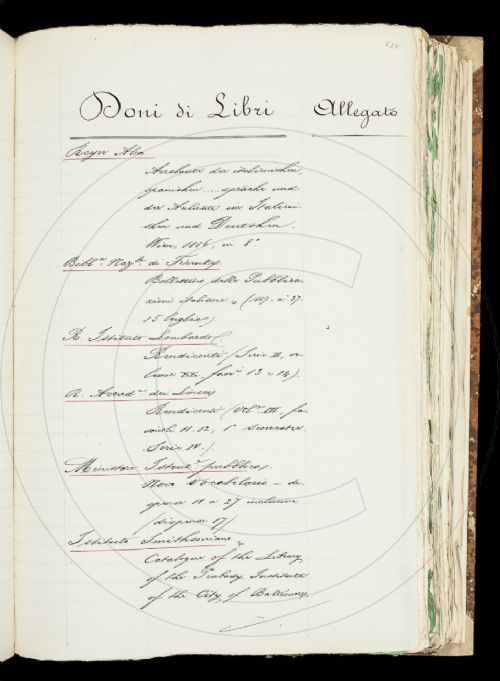 Doni di Libri Allegato
Beyer Alex
der italienischen
spanischen .... sprache und
der Anlaute im Italieni-
schen und Deutschen.
Wien, 1886, in 8°
Bibl.ª Naz.le di Firenze
Bollettino delle Pubblica-
zioni italiane, (1887. n° 37
15 luglio)
R. Istituto Lombardo
Rendiconti (Serie II, vo-
lume XX. fasc.
R. Accad.ª dei Lincei
Rendiconti (Vol.e III. fa-
scicoli 11. 12, 1° semestre
Serie IV.)
Ministero Istruz.e pubblica
Novo Vocabolario – di-
spensa 18 a 27 inclusive
(dispensa 17)
Istituto Smithsoniano
Catalogue of the Library
of the Peabody Institute
of the City of Baltimore.